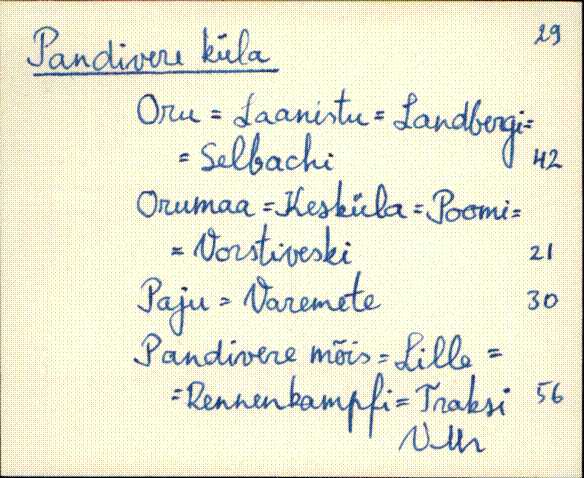 29
Pandivere küla
Oru = Laanistu = Landbergi =
= Selbachi 42
Orumaa = Kesküla = Poomi =
= Vorstiveski 21
Paju = Varemete 30
Pandivere mõis = Lille =
= Rennenkampfi = Traksi 56
VMr